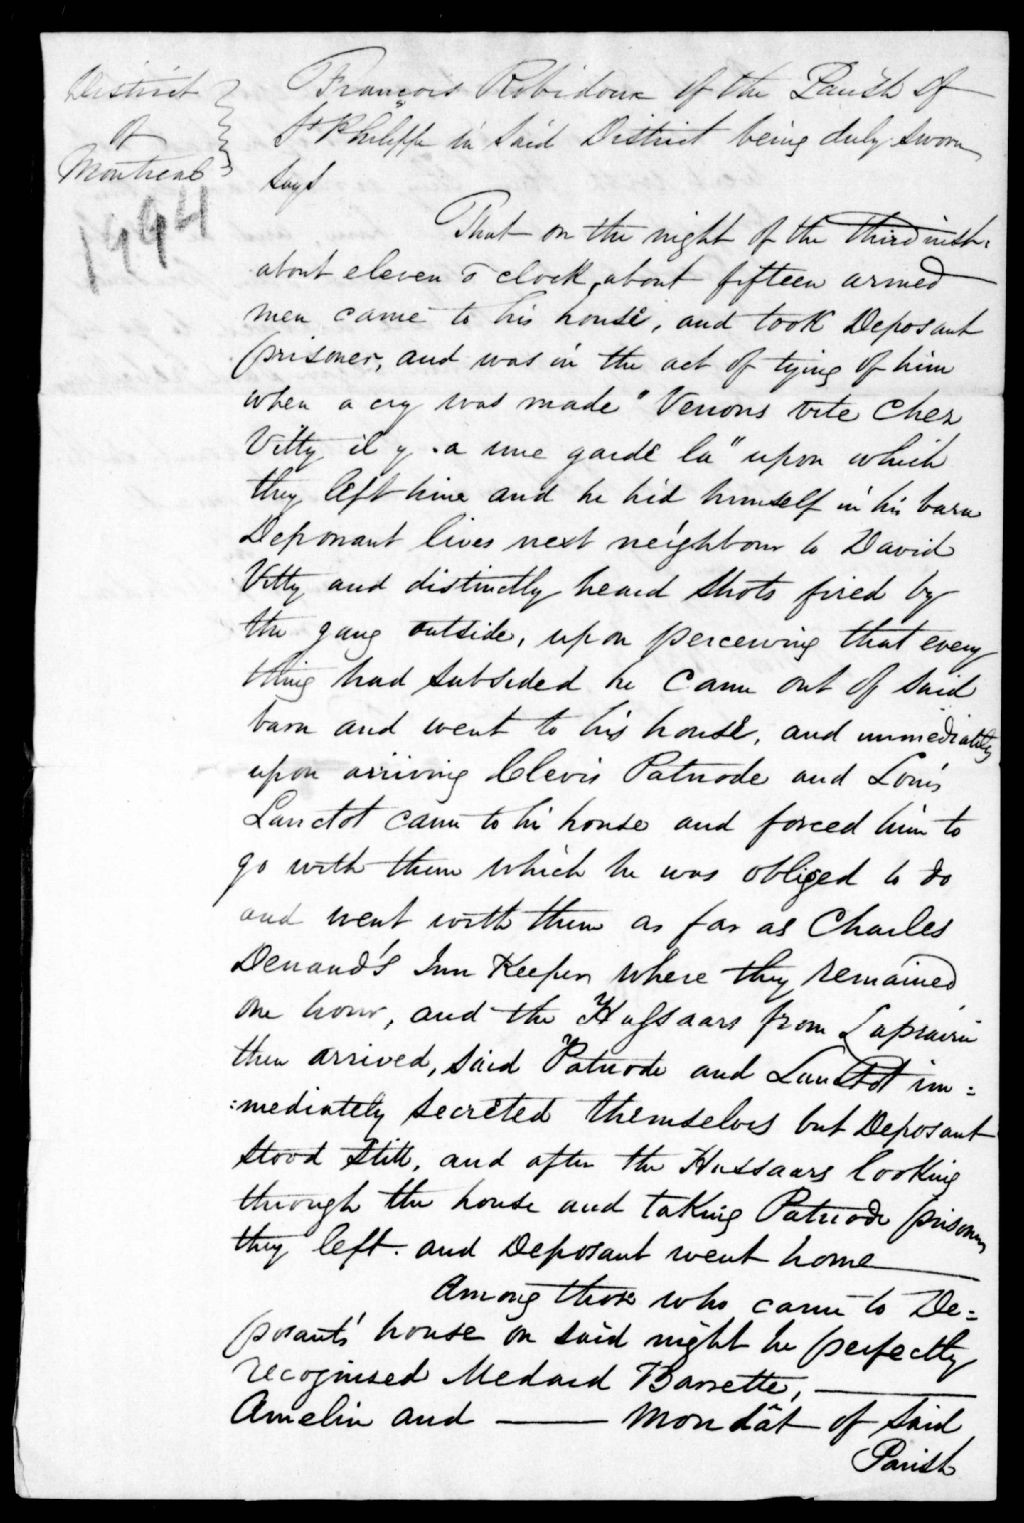 District
of
Montreal
1994
François Robidoux of the Parish of
St Philippe in said District being duly sworn
says
That on the night of the third inst.
about eleven o clock, about fifteen armed
men came to his house, and took Deposant
prisoner, and was in the act of tying of him
when a cry was made "Venons vite chez
Vitty il y .a une garde la" upon which
they left him and he hid himself in his barn
Deponant lives next neighbour to David
Vitty and distinctly heard shots fired by
the gang outside, upon perceiving that every
thing had subsided he came out of said
barn and went to his house, and immediately
upon arriving Clevis Patnode and Louis
Lanctot came to his house and forced him to
go with them which he was obliged to do
and went with them as far as Charles
Denaud's Inn Keeper where they remained
one hour, and the Hussaars from Laprairie
then arrived, said Patnode and Lanctot im=
:mediately secreted themselves but Deposant
stood still, and after the Hussaars looking
through the house and taking Patnode prisoner
they left. and Deposant went home
Among those who came to De=
posants' house on said night he perfectly
recognised Medard Barrette, ———
Amelin and ——— Mondât of said
Parish